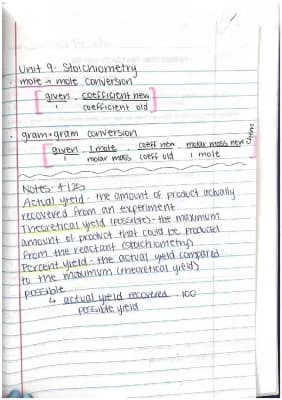 Unit 9- Stoichiometry
• mole → mole conversion
given . coefficient new
1 coefficient old
• gram→gram conversion
given . 1 mole . coeff new . molar mass new
1 molar mass coeff old 1 mole
Notes- 4/25
Actual yield - the amount of product actually
recovered from an experiment
Theoretical yield (possible)- the maximum
amount of product that could be produced
from the reactant (stoichiometry)
Percent yield - the actual yield compared
to the maximum (theoretical yield)
possible
↳ actual yield recovered . 100
possible yield